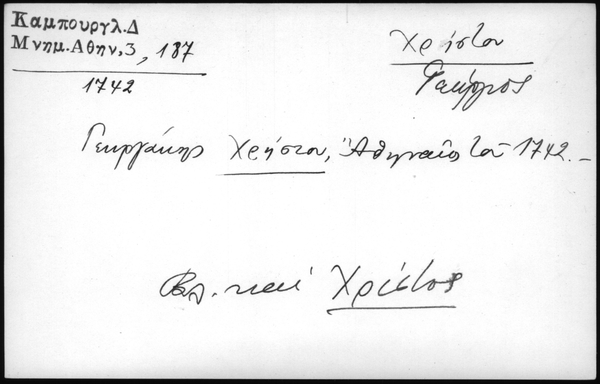 Καμπουργλ.Δ
Μνημ.Αθην,3, 187
1742
Χρήστου
Γεώργιος
Γεωργάκης Χρήστου, Ἀθηναῖος τοῦ 1742.-
Βλ. καί Χρίστος